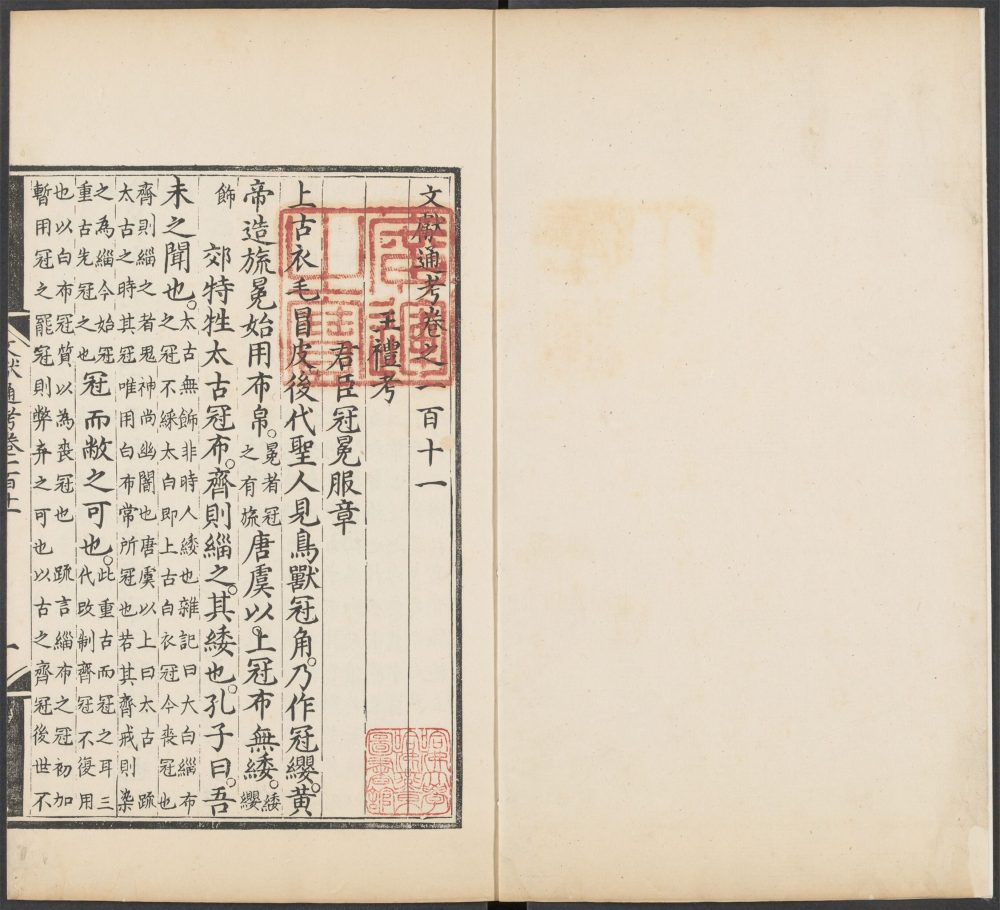 文獻通考卷之一百十一
王禮考
君臣冠冕服章
上古衣毛冒皮後代聖人見鳥獸冠角。乃作冠纓。黃
帝造旒冕始用布帛。冕者冠之有旒唐虞以上。冠布無緌。緌纓
飾　郊特牲太古冠布。齊則緇之。其緌也。孔子曰。吾
未之聞也。太古無飾非時人緌也雜記曰大白緇布
之冠不綵太白即上古白衣冠今喪冠也
齊則緇之者鬼神尚幽闇也唐虞以上曰太古　疏
太古之時其冠唯用白布常所冠也若其齊戒則染
之為緇今始冠
重古先冠之也冠而敝之可也。此重古而冠之耳三
代改制齊冠不復用
也以白布冠質以為喪冠也　疏言緇布之冠初加
暫用冠之罷冠則弊弃之可也以古之齊冠後世不
文獻通考卷一百十一
一
哈佛大學
哈佛燕京
圖書館